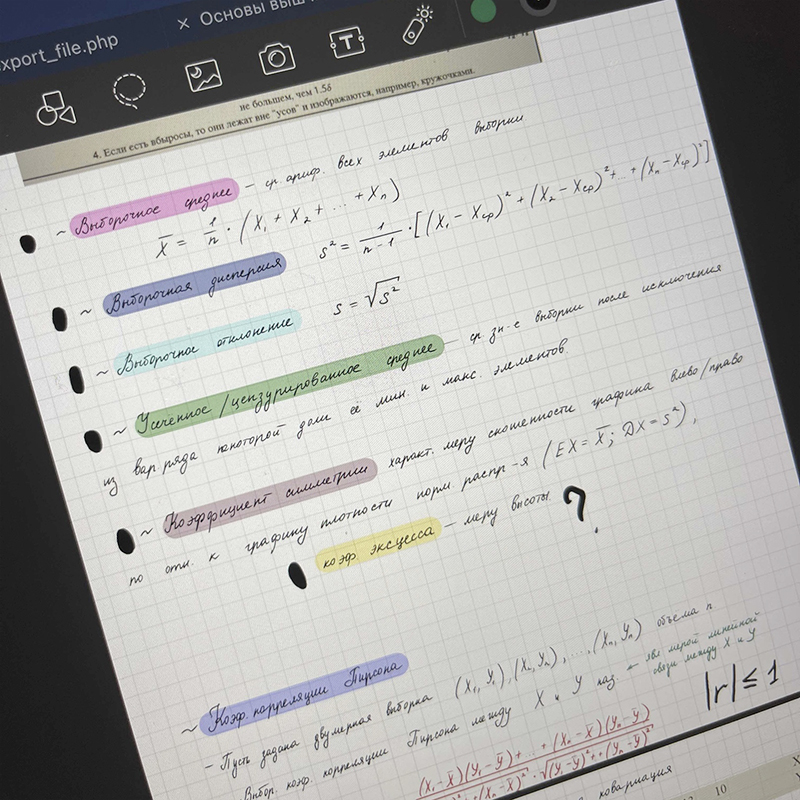 xport_file.php
× Основы выш
не большем, чем 1.5δ
4. Если есть выбросы, то они лежат вне "усов" и изображаются, например, кружочками.
~ Выборочное среднее – ср. ариф. всех элементов выборки
X̅ = 1/n · (X₁ + X₂ + ... + Xₙ)
~ Выборочная дисперсия s² = 1/(n-1) · [(X₁ – Xср)² + (X₂ – Xср)² + ... + (Xₙ – Xср)²]
~ Выборочное отклонение s = √s²
~ Усечённое/цензурированное среднее – ср. зн-е выборки после исключения
из вар. ряда некоторой доли её мин. и макс. элементов.
~ Коэффициент симметрии характ. меру скошенности графика влево/право
по отн. к графику плотности норм. распр-я (EX = X̅; DX = s²),
коэф. эксцесса – меру высоты. ?
~ Коэф. корреляции Пирсона
– Пусть задана двумерная выборка (X₁, Y₁), (X₂, Y₂), ..., (Xₙ, Yₙ) объема n
Выбор. коэф. корреляции Пирсона между X и Y наз. ← явл. мерой линейной
связи между X и Y
|r| ≤ 1
(X₁ – X̅)(Y₁ – Y̅) + ... + (Xₙ – X̅)(Yₙ – Y̅)
+ (Xₙ – X̅)² · √(Y₁ – Y̅)² + ... + (Yₙ – Y̅)²
ковариация
10
X